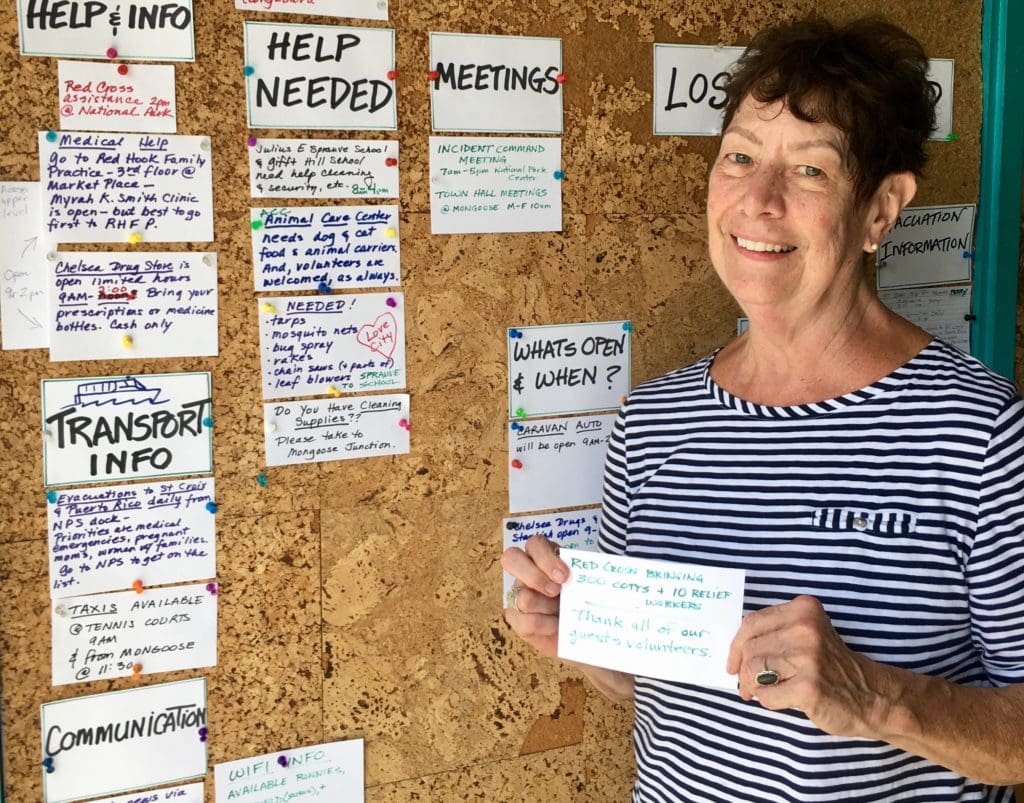 HELP & INFO
Red Cross
assistance 2pm
@ National Park
Medical Help
go to Red Hook Family
Practice - 3rd floor @
Market Place -
Myrah K. Smith Clinic
is open - but best to go
first to RHFP.
Access
upper
level
Open
9-2pm
Chelsea Drug Store is
open limited hours
9AM- 2:00 Bring your
prescriptions or medicine
bottles. Cash only
TRANSPORT
INFO
Evacuations to St Croix
& Puerto Rico daily from
NPS dock -
Priorities are medical
emergencies, pregnant
moms, woman w/ families.
Go to NPS to get on the
list.
TAXIS AVAILABLE
@ TENNIS COURTS
9AM
& from MONGOOSE
@ 11:30
COMMUNICATION
via
HELP
NEEDED
Julius E Sprauve School
& gifft Hill School
need help cleaning
& security, etc. 8-4pm
ACC
Animal Care Center
needs dog & cat
food & animal carriers.
And, volunteers are
welcomed, as always.
NEEDED!
· tarps
· mosquito nets
· bug spray
· rakes
· chain saws (+ parts of)
· leaf blowers SPRAUVE
TO SCHOOL
Love
City
Do You Have Cleaning
Supplies??
Please take to
Mongoose Junction.
WIFI INFO
AVAILABLE RONNIES,
(SCHOOL), +
MEETINGS
INCIDENT COMMAND
MEETING
7am-5pm National Park
Center
TOWN HALL MEETINGS
@ MONGOOSE M-F 10am
WHATS OPEN
& WHEN?
CARAVAN AUTO
will be open 9AM-2
Chelsea Drugs &
open 9-
LOS
D
EVACUATION
INFORMATION
RED CROSS BRINGING
300 COTYS + 10 RELIEF
WORKERS
Thank all of our
guests volunteers.